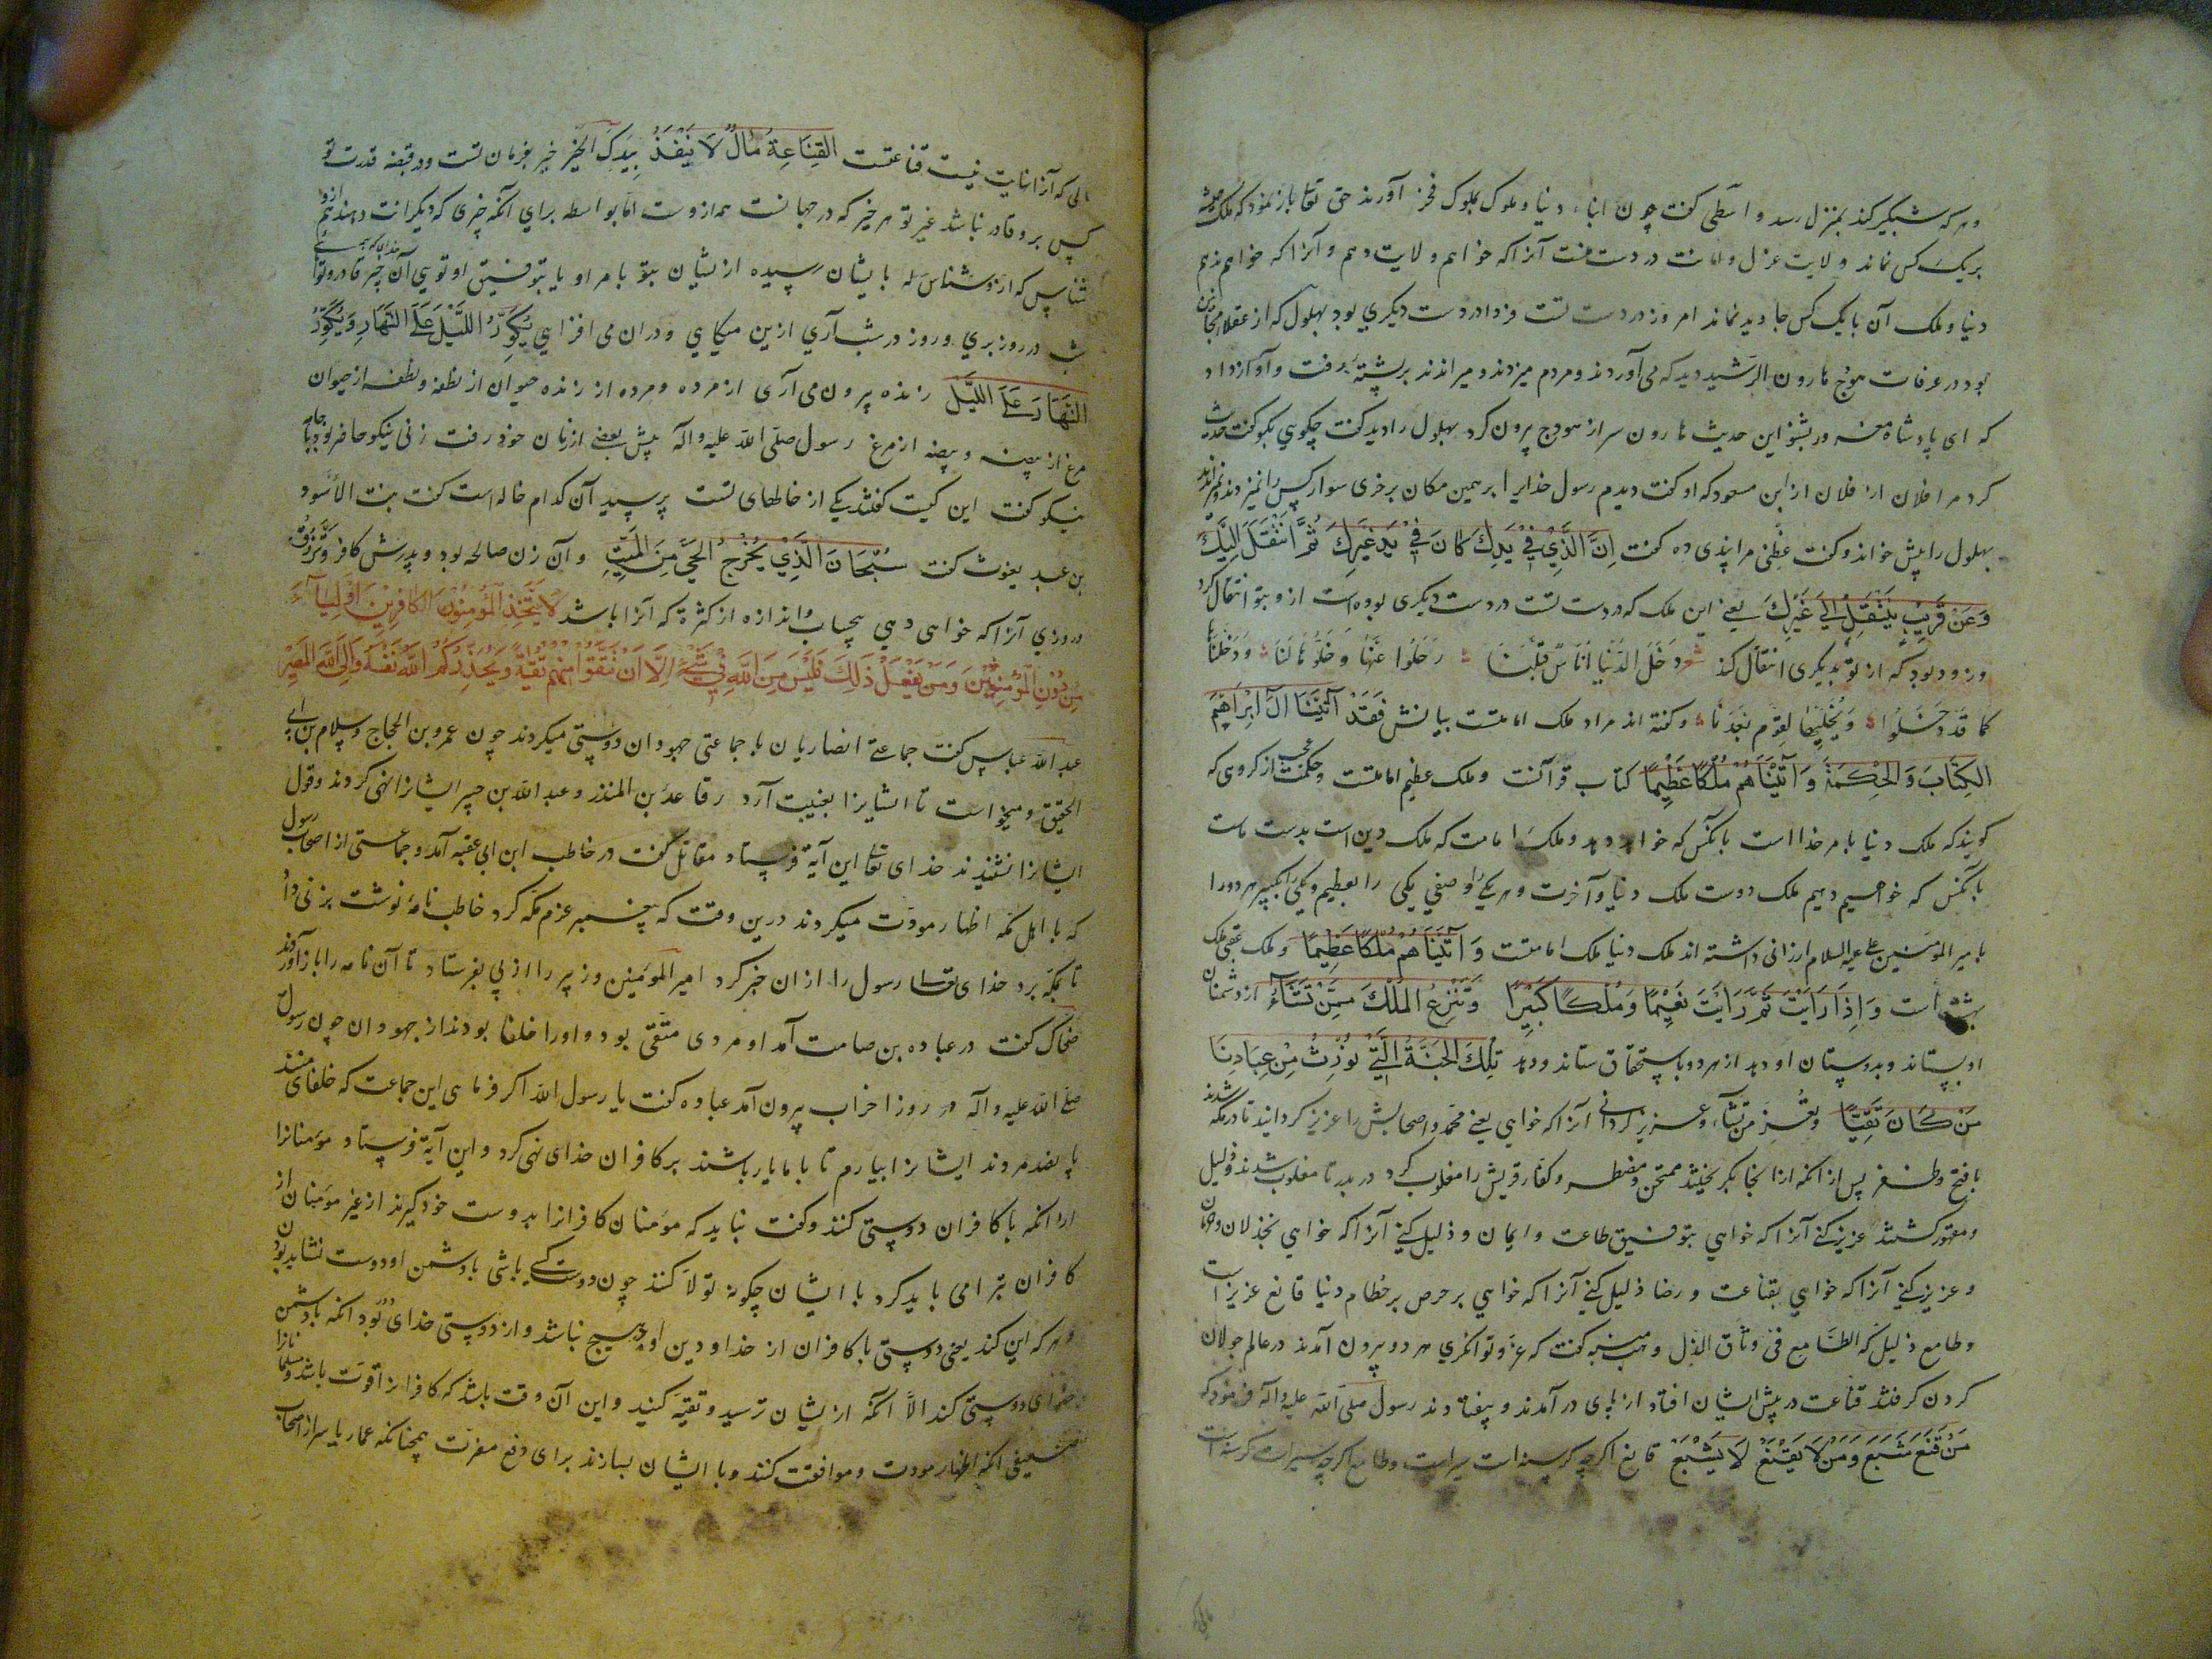 و هر که شبگیر کند بمنزل رسد واسطی گفت چون ابناء دنیا و ملوک بملوک فخر آورند حق تعا باز نمود که ملک همیشه
بریک کس نماند ولایت عزل و امانت در دست منت آنرا که خواهم ولایت دهم و آنرا که خواهم ندهم
دنیا و ملک آن با یک کس جاوید نماند امروز در دست تست فردا در دست دیگری بود بهلول که از عقلا مجانین
بود در عرفات هودج هارون الرشید دید که می آوردند و مردم میزدند و میراندند برپشته برفت و آواز داد
که ای پادشاه مغرور بشنو این حدیث هارون سر از هودج بیرون کرد بهلول را دید گفت چگویی بگو گفت حدیث
کرد مرا فلان از فلان از ابن مسعود که او گفت دیدم رسول خدایرا برهمین مکان برخری سوار کس را نمیزدند و نمیراندند
بهلول را پیش خواند و گفت عظنی مرا پندی ده گفت اِنَّ الَّذِیْ فِیْ یَدِكَ كَانَ فِیْ یَدِ غَیْرِكَ ثُمَّ انْتَقَلَ اِلَیْكَ
وَعَنْ قَرِیْبٍ یَنْتَقِلُ اِلیٰ غَیْرِكَ یعنی این ملک که در دست تست در دست دیگری بوده است ازو بتو انتقال کرد
و زود بود که از تو بدیگری انتقال کند شعر دَخَلَ الدُّنْیَا اُنَاسٌ قَبْلَنَا رَحَلُوا عَنْهَا وَ خَلُّوْهَا لَنَا وَدَخَلْنَاهَا
كَمَا قَدْ دَخَلُوا وَ نُخَلِّیْهَا لِقَوْمٍ بَعْدَنَا و گفته اند مراد ملک امامتست بیانش فَقَدْ آتَیْنَا آلَ اِبْرَاهِیْمَ
الكِتَابَ وَالْحِكْمَةَ وَ آتَیْنَاهُمْ مُلْكًا عَظِیْمًا کتاب قرآنست و ملک عظیم امامتست و حکمت عجب از گروهی که
گویند که ملک دنیا بامر خدا است بانکس که خواهد دهد و ملک امامت که ملک دین است بدست ماست
بانکس که خواهیم دهیم ملک دوست ملک دنیا و آخرت و هر یکی را وصفی یکی را بعظیم و یکی را بکبیر هر دو را
بامیر المؤمنین علی علیه السلام ارزانی داشته اند ملک دنیا ملک امامتست وَ آتَیْنَاهُمْ مُلْكًا عَظِیْمًا و ملک عقبی ملک
بهشت است وَ اِذَا رَاَیْتَ ثَمَّ رَاَیْتَ نَعِیْمًا وَ مُلْكًا كَبِیْرًا وَتَنْزِعُ الْمُلْكَ مِمَّنْ تَشَاءُ از دشمنان
او بستاند و بدوستان او دهد از هر دو باستحقاق ستاند و دهد تِلْكَ الْجَنَّةُ الَّتِیْ نُوْرِثُ مِنْ عِبَادِنَا
مَنْ كَانَ تَقِیًّا وتُعِزُّ مَنْ تَشَاءُ و عزیز گردانی آنرا که خواهی یعنی محمد و اصحابش را عزیز گردانید تا در مکه شدند
با فتح و ظفر پس از انکه از انجا بگریختند ممتحن و مضطر و کفار قریش را مغلوب کرد در بدر تا مغلوب شدند و ذلیل
و مقهور گشتند عزیز کنی آنرا که خواهی بتوفیق طاعت و ایمان و ذلیل کنی آنرا که خواهی بخذلان و حرمان
و عزیز کنی آنرا که خواهی بقناعت و رضا ذلیل کنی آنرا که خواهی برحرص برحطام دنیا قانع عزیز است
و طامع ذلیل که الطامع فی وثاق الذل وهب منبه گفت که عز و توانگری هر دو بیرون آمدند در عالم جولان
کردن گرفتند قناعت در پیش ایشان افتاد از پای در آمدند و بیفتادند رسول صلی الله علیه وآله فرمود که
مَنْ قَنَعَ شَبَعَ وَ مَنْ لَا یَقْنَعْ لَا یَشْبَعْ قانع اگرچه گرسنه است سیر است و طامع اگرچه سیر است گرسنه است
الی که آنرا نهایت نیست قناعتست القَنَاعَةُ مَالٌ لَا یَنْفَدُ بِیَدِكَ الْخَیْرُ خیر بفرمان تست و در قبضه قدرت تو
کس برو قادر نباشد غیر تو هر خیر که در جهانست همه از وست اما بواسطه برای انکه چیزی که دیگرانت دهند هم ازو
شناس که ازو شناس که بایشان رسیده از یشان بتو بامر او یا بتوفیق او تویی آن چیز قادر و توانا
شب در روز بری و روز در شب آری ازین میکاهی و دران می افزایی یُكَوِّرُ اللَّیْلَ عَلَی النَّهَارِ وَ یُكَوِّرُ
النَّهَارَ عَلَی اللَّیْلِ زنده بیرون می آری از مرده و مرده از زنده حیوان از نطفه و نطفه از حیوان
مرغ از بیضه و بیضه از مرغ رسول صلی الله علیه وآله پیش بعضی از زنان خود رفت زنی نیکو حاضر بود با جامهٔ
نیکو گفت این کیست گفتند یکی از خالهای تست پرسید آن کدام خاله است گفت بنت الاسود
بن عبد یغوث گفت سُبْحَانَ الَّذِیْ یُخْرِجُ الْحَیَّ مِنَ الْمَیِّتِ و آن زن صالحه بود و پدرش کافر وَتَرْزُقُ
و روزی آنرا که خواهی دهی بیحساب و اندازه از کثرة که آنرا باشد لَا یَتَّخِذِ الْمُؤْمِنُوْنَ الْكَافِرِیْنَ اَوْلِیَاءَ
مِنْ دُوْنِ الْمُؤْمِنِیْنَ وَمَنْ یَفْعَلْ ذٰلِكَ فَلَیْسَ مِنَ اللّٰهِ فِیْ شَیْءٍ اِلَّا اَنْ تَتَّقُوْا مِنْهُمْ تُقٰیةً وَ یُحَذِّرُكُمُ اللّٰهُ نَفْسَهُ وَ اِلَی اللّٰهِ الْمَصِیْرُ
عبد الله عباس گفت جماعة انصاریان با جماعتی جهودان دوستی میکردند چون عمرو بن الحجاج و سلام بن ابی
الحقیق و میخواست تا ایشانرا بغیبت آرد رفاعة بن المنذر و عبد الله بن جبیر ایشانرا نهی کردند و قول
ایشانرا نشنیدند خدای تعا این آیة فرستاد مقاتل گفت در خاطب ابن ابی عقبه آمد و جماعتی از اصحاب رسول
که با اهل مکه اظهار مودت میکردند درین وقت که پیغمبر عزم مکه کرد خاطب نامهٔ نوشت بزنی داد
تا بمکه برد خدای تعا رسول را ازان خبر کرد امیر المؤمنین و زبیر را از پی بفرستاد تا آن نامه را باز آوردند
ضحاک گفت در عباده بن صامت آمد او مردی متقی بود و اورا خلفا بودند از جهودان چون رسول
صلی الله علیه وآله در روز احزاب بیرون آمد عباده گفت یا رسول الله اگر فرمایی این جماعت که خلفای منند
پانصد مردند ایشانرا بیارم تا با ما یار باشند برکافران خدای نهی کرد و این آیة فرستاد مؤمنانرا
از انکه با کافران دوستی کنند و گفت نباید که مؤمنان کافرانرا بدوست خود گیرند از غیر مؤمنان از
کافران تبرا می باید کرد با ایشان چگونه تولا کنند چون دوست کسی باشی با دشمن او دوست نشاید بودن
و هر که این کند یعنی دوستی با کافران از خدا و دین او هیچ نباشد و از دوستی خدای نبود انکه با دشمن
خدای دوستی کند الا انکه از یشان ترسید و تقیه کنید و این آن وقت باشد که کافرانرا قوت باشد و مسلمانانرا
ضعیفی انکه اظهار مودت و موافقت کنند و با ایشان بسازند برای دفع مضرت همچنانکه عمار یاسر از اصحاب